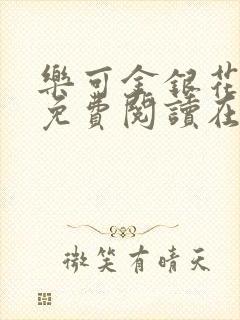 樂可金銀花
免費閱讀在
微笑有晴天